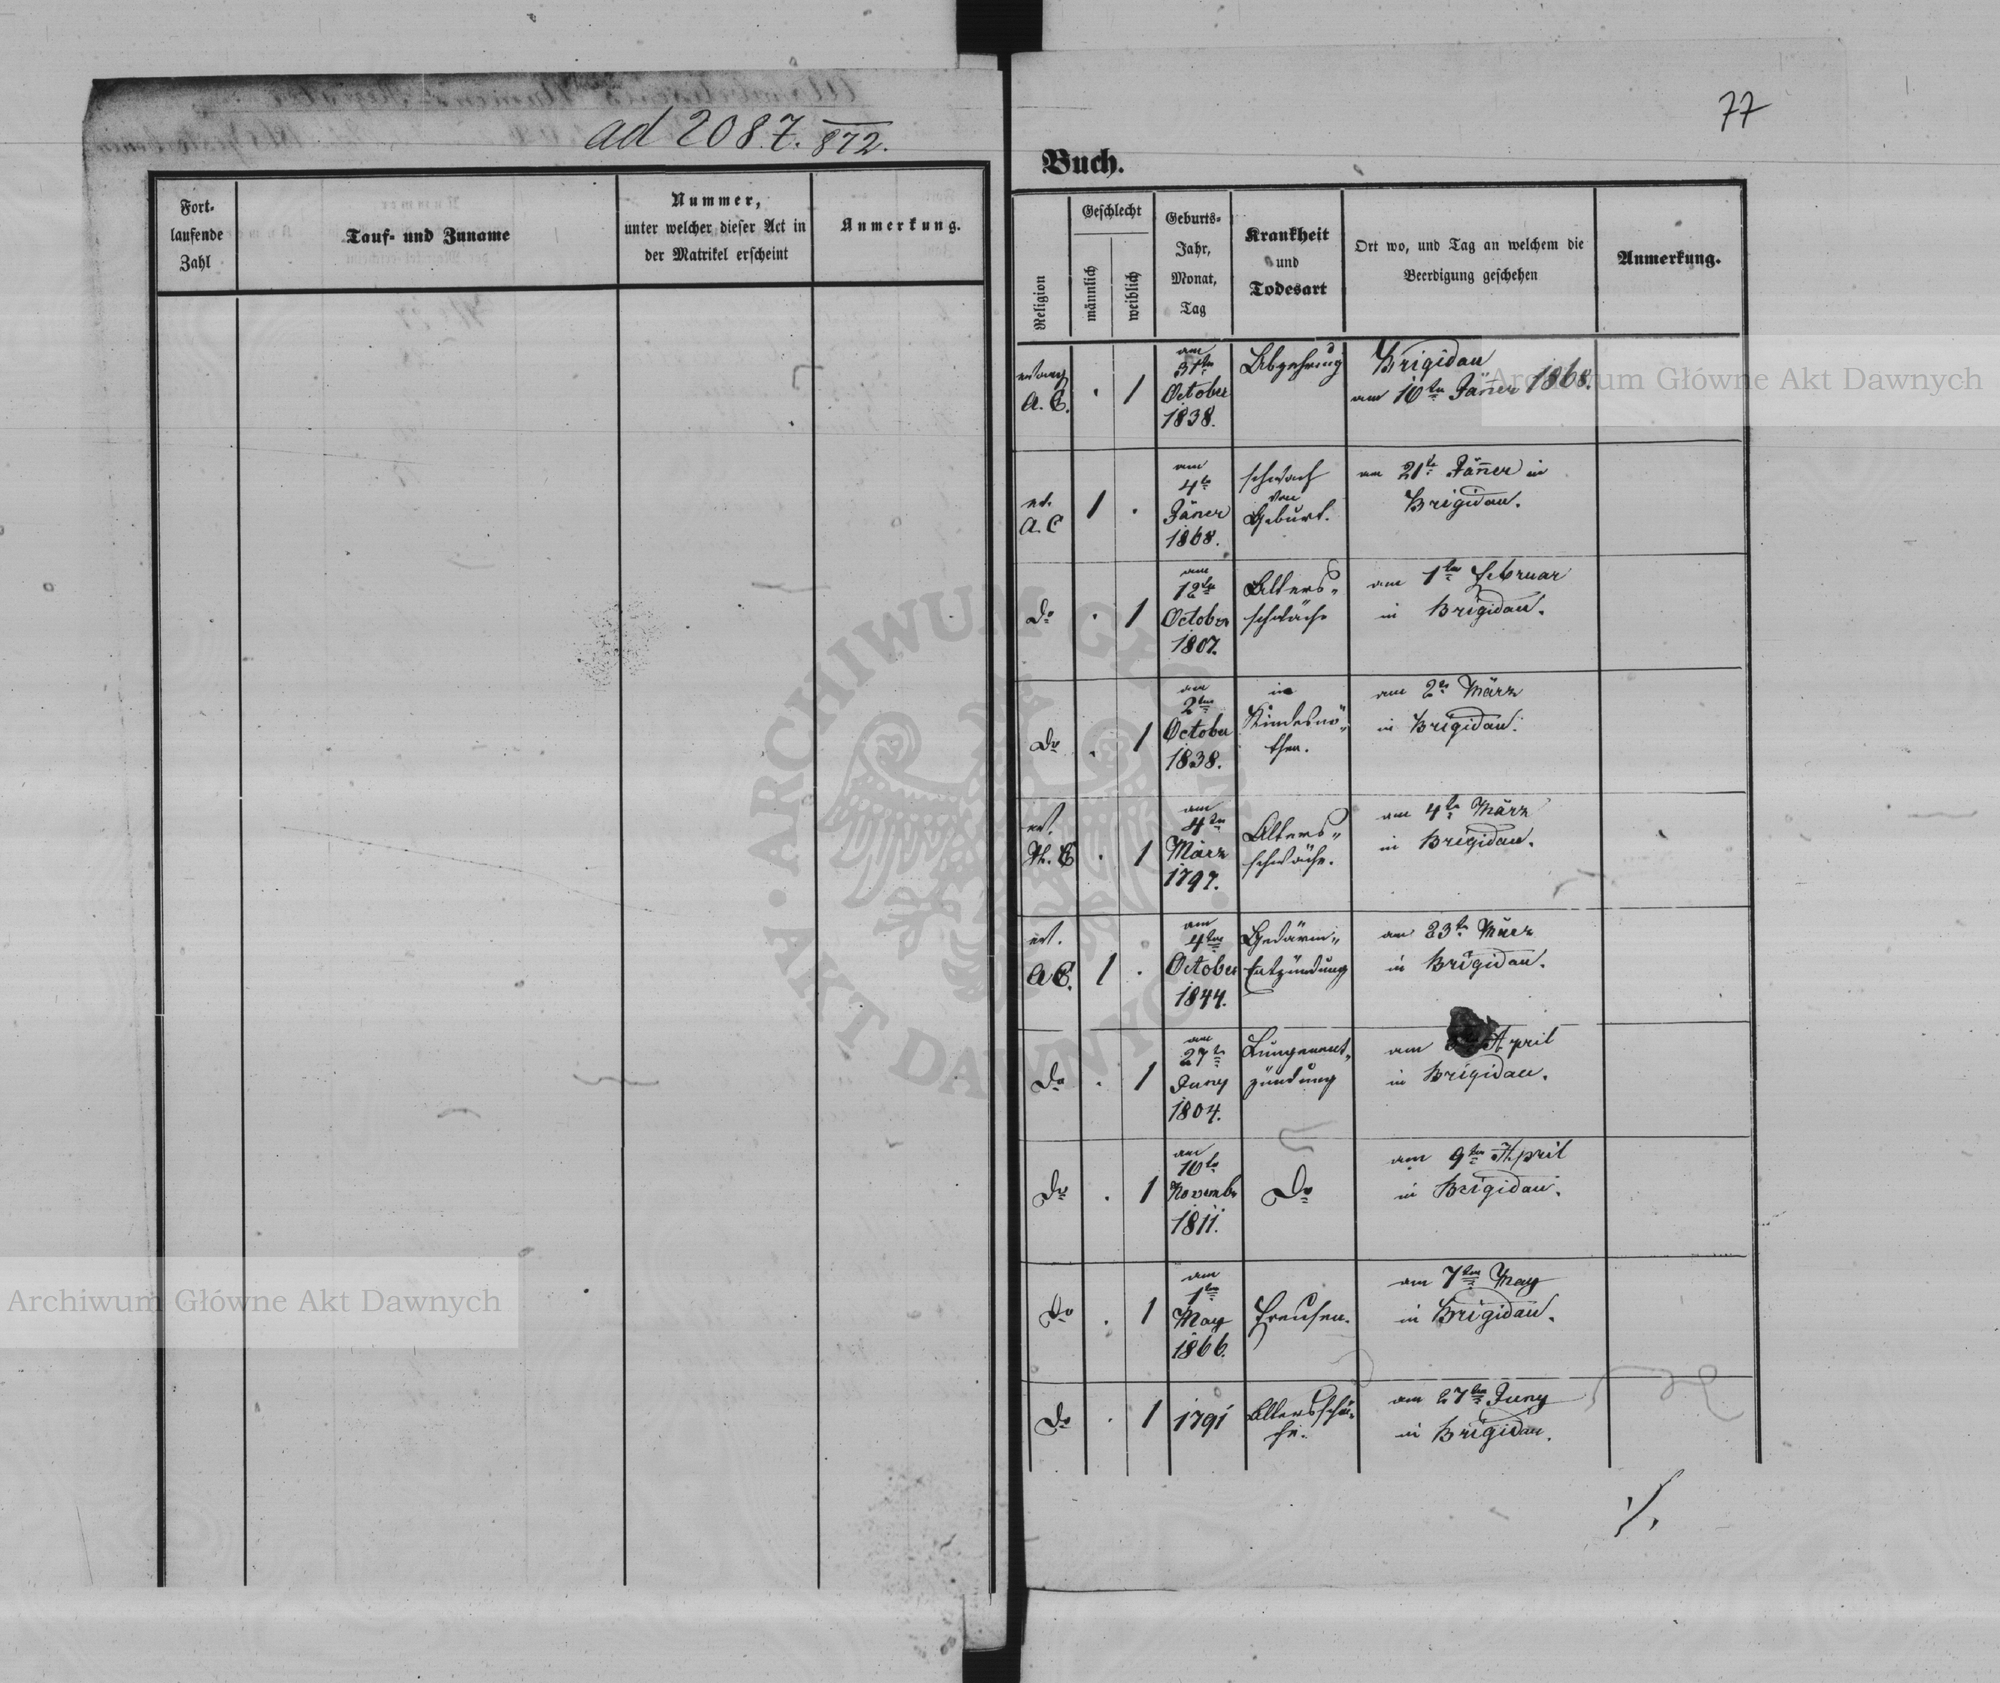 ad 2087. 872.
Fort-
laufende
Zahl
Tauf- und Zuname
Nummer,
unter welcher dieser Act in
der Matrikel erscheint
Anmerkung.
77
Buch.
Religion
Geschlecht
männlich
weiblich
Geburts-
Jahr,
Monat,
Tag
Krankheit
und
Todesart
Ort wo, und Tag an welchem die
Beerdigung geschehen
Anmerkung.
evang
A. C.
1
am
31ten
October
1838.
Abzehrung
Brigidau
am 10ten Jäner 1868.
ev.
A. C
1
am
4te
Jäner
1868.
schwach
von
Geburt.
am 21te Jäner in
Brigidau.
Do
1
am
12ten
October
1807.
Alters-
schwäche
am 1ten Februar
in Brigidau.
Do
1
am
2ten
October
1838.
in
Kindesnö-
then.
am 2te März
in Brigidau.
ev.
H. C
1
am
4ten
März
1797.
Alters-
schwäche.
am 4te März
in Brigidau.
ev.
A C.
1
am
4ten
October
1844.
Gedärm-
Entzündung
am 23te März
in Brigidau.
Do
1
am
27te
Juny
1804.
Lungenent-
zündung
am April
in Brigidau.
Do
1
am
10te
Novemb
1811.
Do
am 9ten April
in Brigidau.
Do
1
am
1ten
May
1866.
Freusen.
am 7ten May
in Brigidau.
Do
1
1791
Altersschwä-
che.
am 27ten Juny
in Brigidau.
./.
Archiwum Główne Akt Dawnych
Archiwum Główne Akt Dawnych
ARCHIWUM GŁÓWNE
AKT DAWNYCH